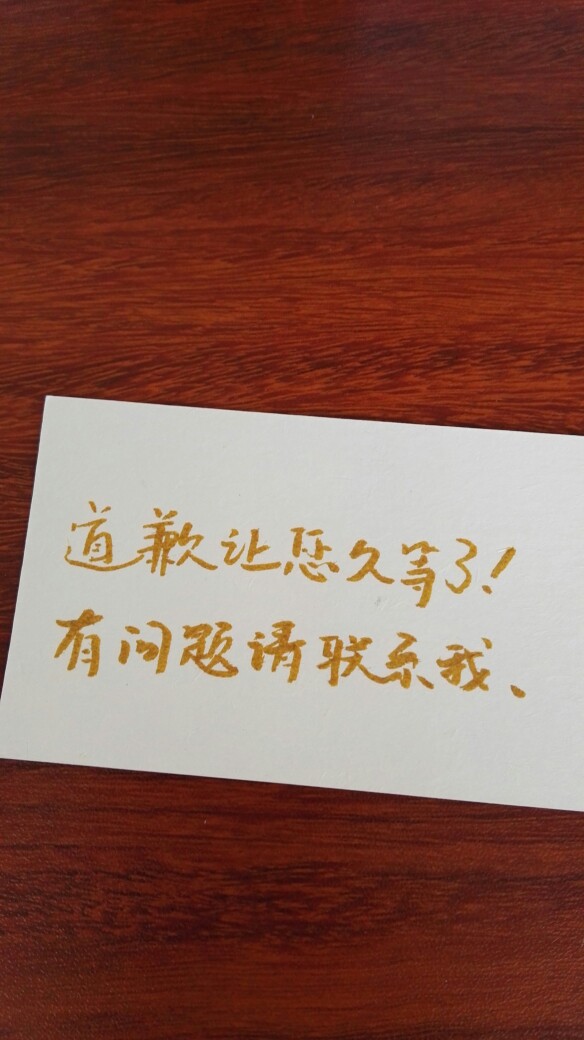 道歉让您久等了！
有问题请联系我、